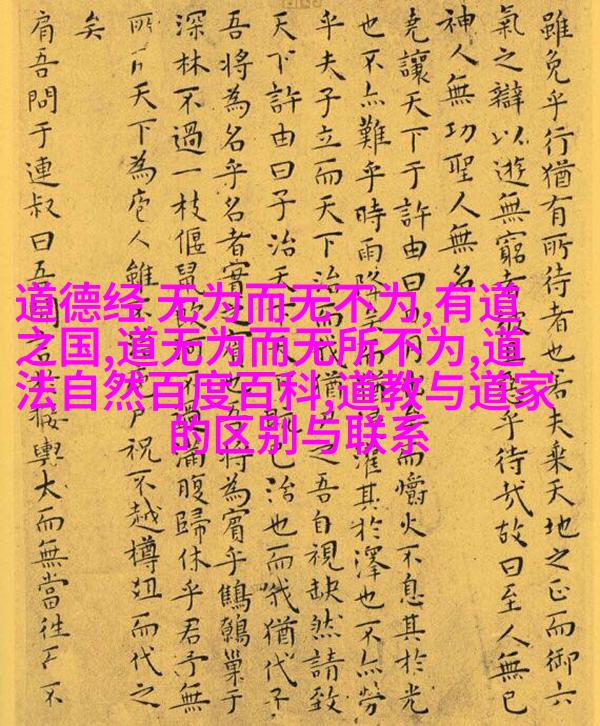 道德经 无为而无不为,有道
之国,道无为而无所不为,道
法自然百度百科,道教与道家
的区别与联系
雖免乎行猶有所待者也若夫乘天地之正而御六
氣之辯以遊無窮者彼且惡乎待哉故曰至人無已
神人無功聖人無名
堯讓天下于許由曰日月矣而爝火不息其於光
也不亦難乎時雨降矣而猶浸灌其於澤也不亦勞
乎夫子立而天下治而猶之吾自視缺然請致
天下許由曰子治天下既已治也而我猶代子
吾將為名乎名者實之賓也吾將為賓乎鷦鷯巢于
深林不過一枝偃鼠飲河不過滿腹歸休乎君予無
所天下為庖人雖不庖尸祝不越樽俎而代之
矣
肩吾問于連叔曰吾聞言接輿大而無當往不